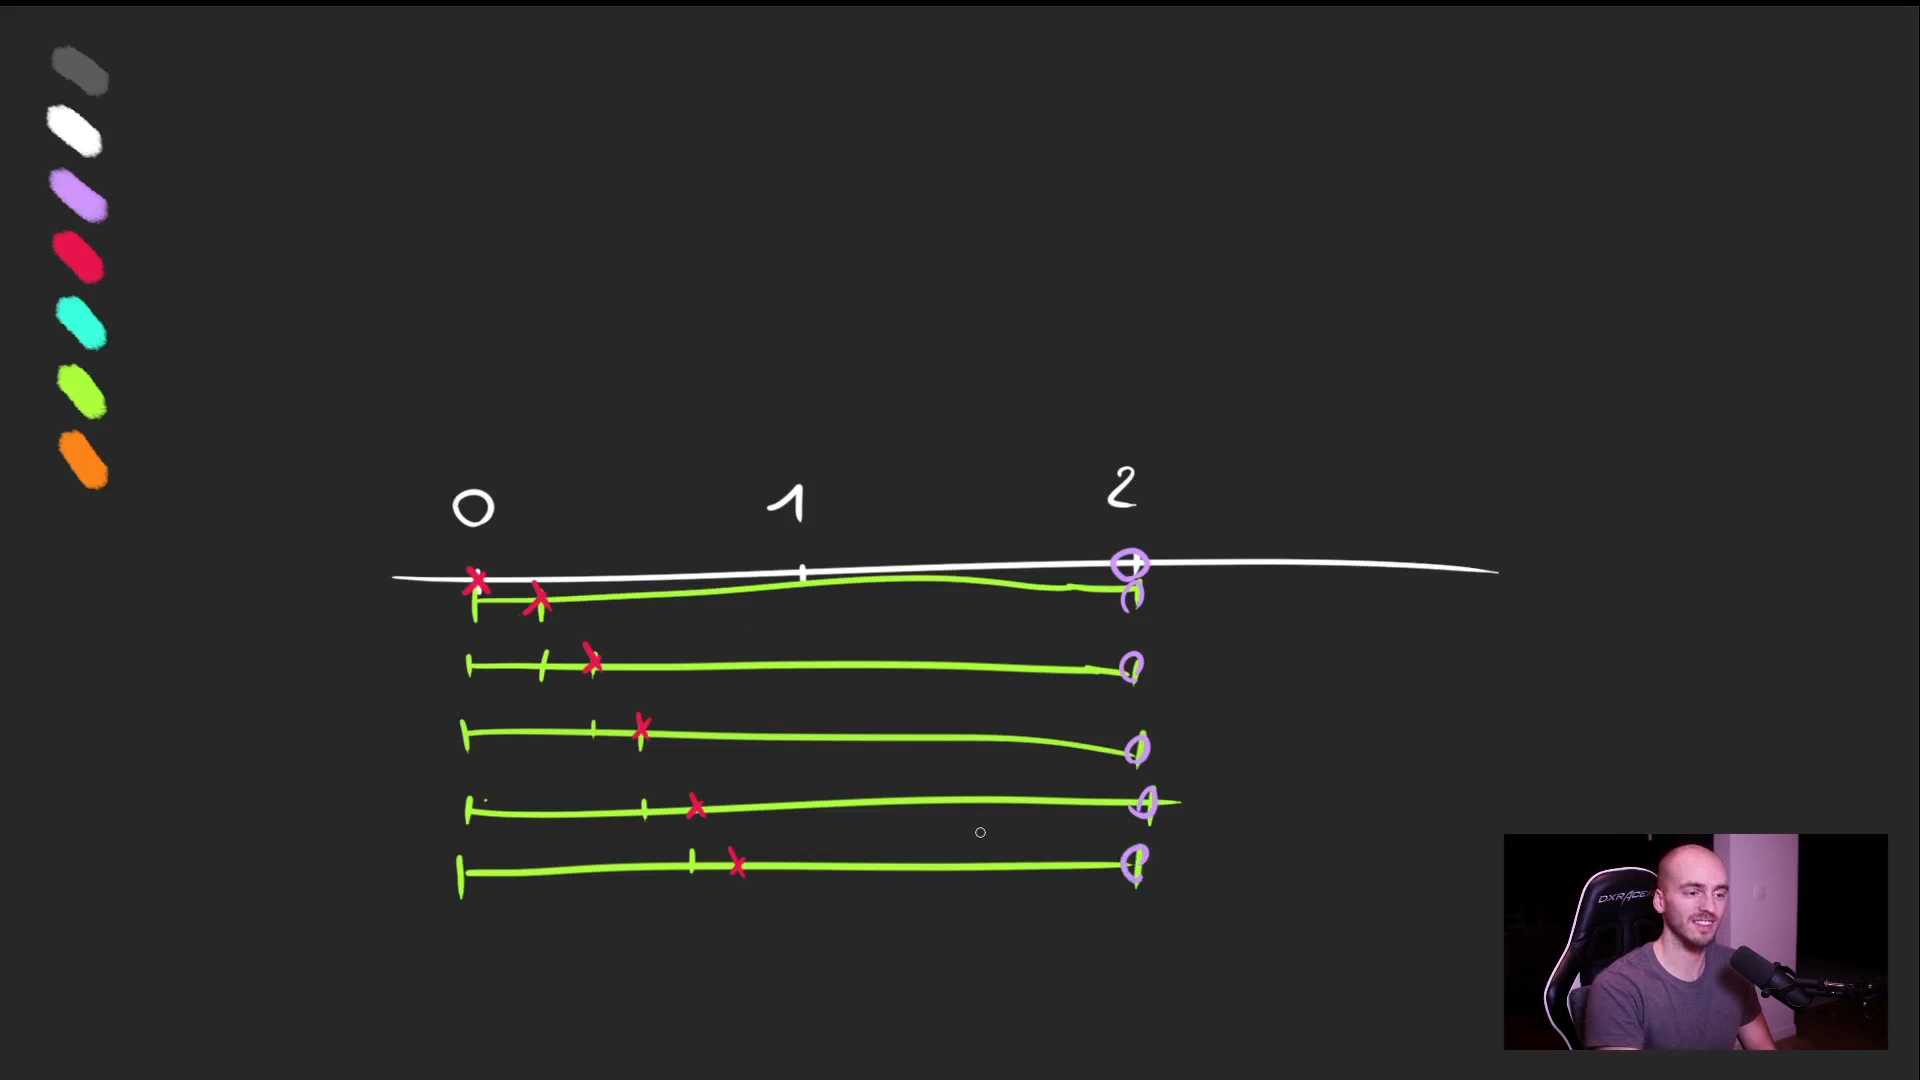 0 1 2
DXRACER